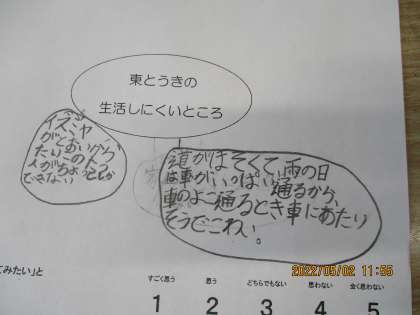 東とうきの
生活しにくいところ
イズミヤ
道がほそくて、雨の日
は車がいっぱい通るから、
車のよこ通るとき車にあたり
そうでこわい。
2022/05/02 11:55
てみたい」と
すごく思う
思う
どちらでもない
思わない
全く思わない
1 2 3 4 5